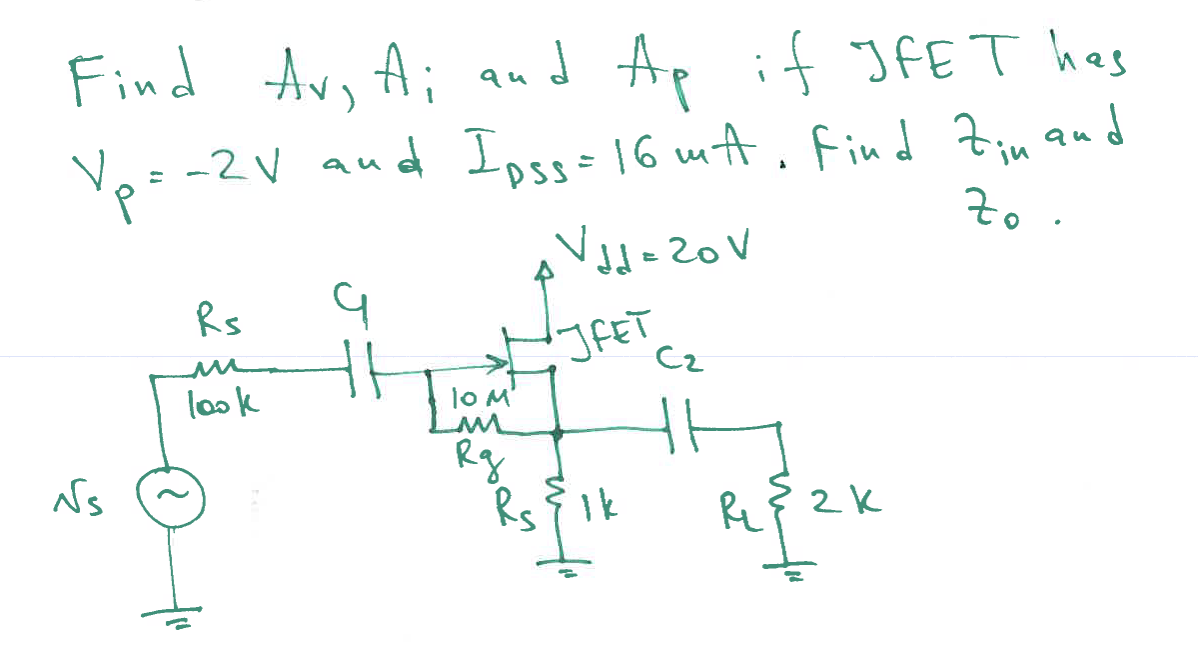 Find Av, Ai and Ap if JFET has
Vp = -2V and IDSS = 16 mA. Find Zin and
Zo.
Vdd = 20V
Rs
C1
JFET
C2
100k
10M
Rg
Vs
Rs
1k
RL
2K